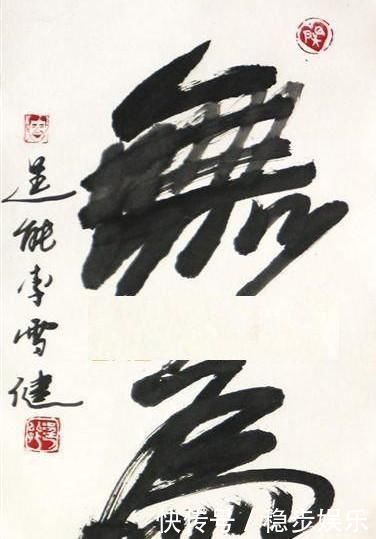 無
為
逞能李雪健
快传号/稳步娱乐